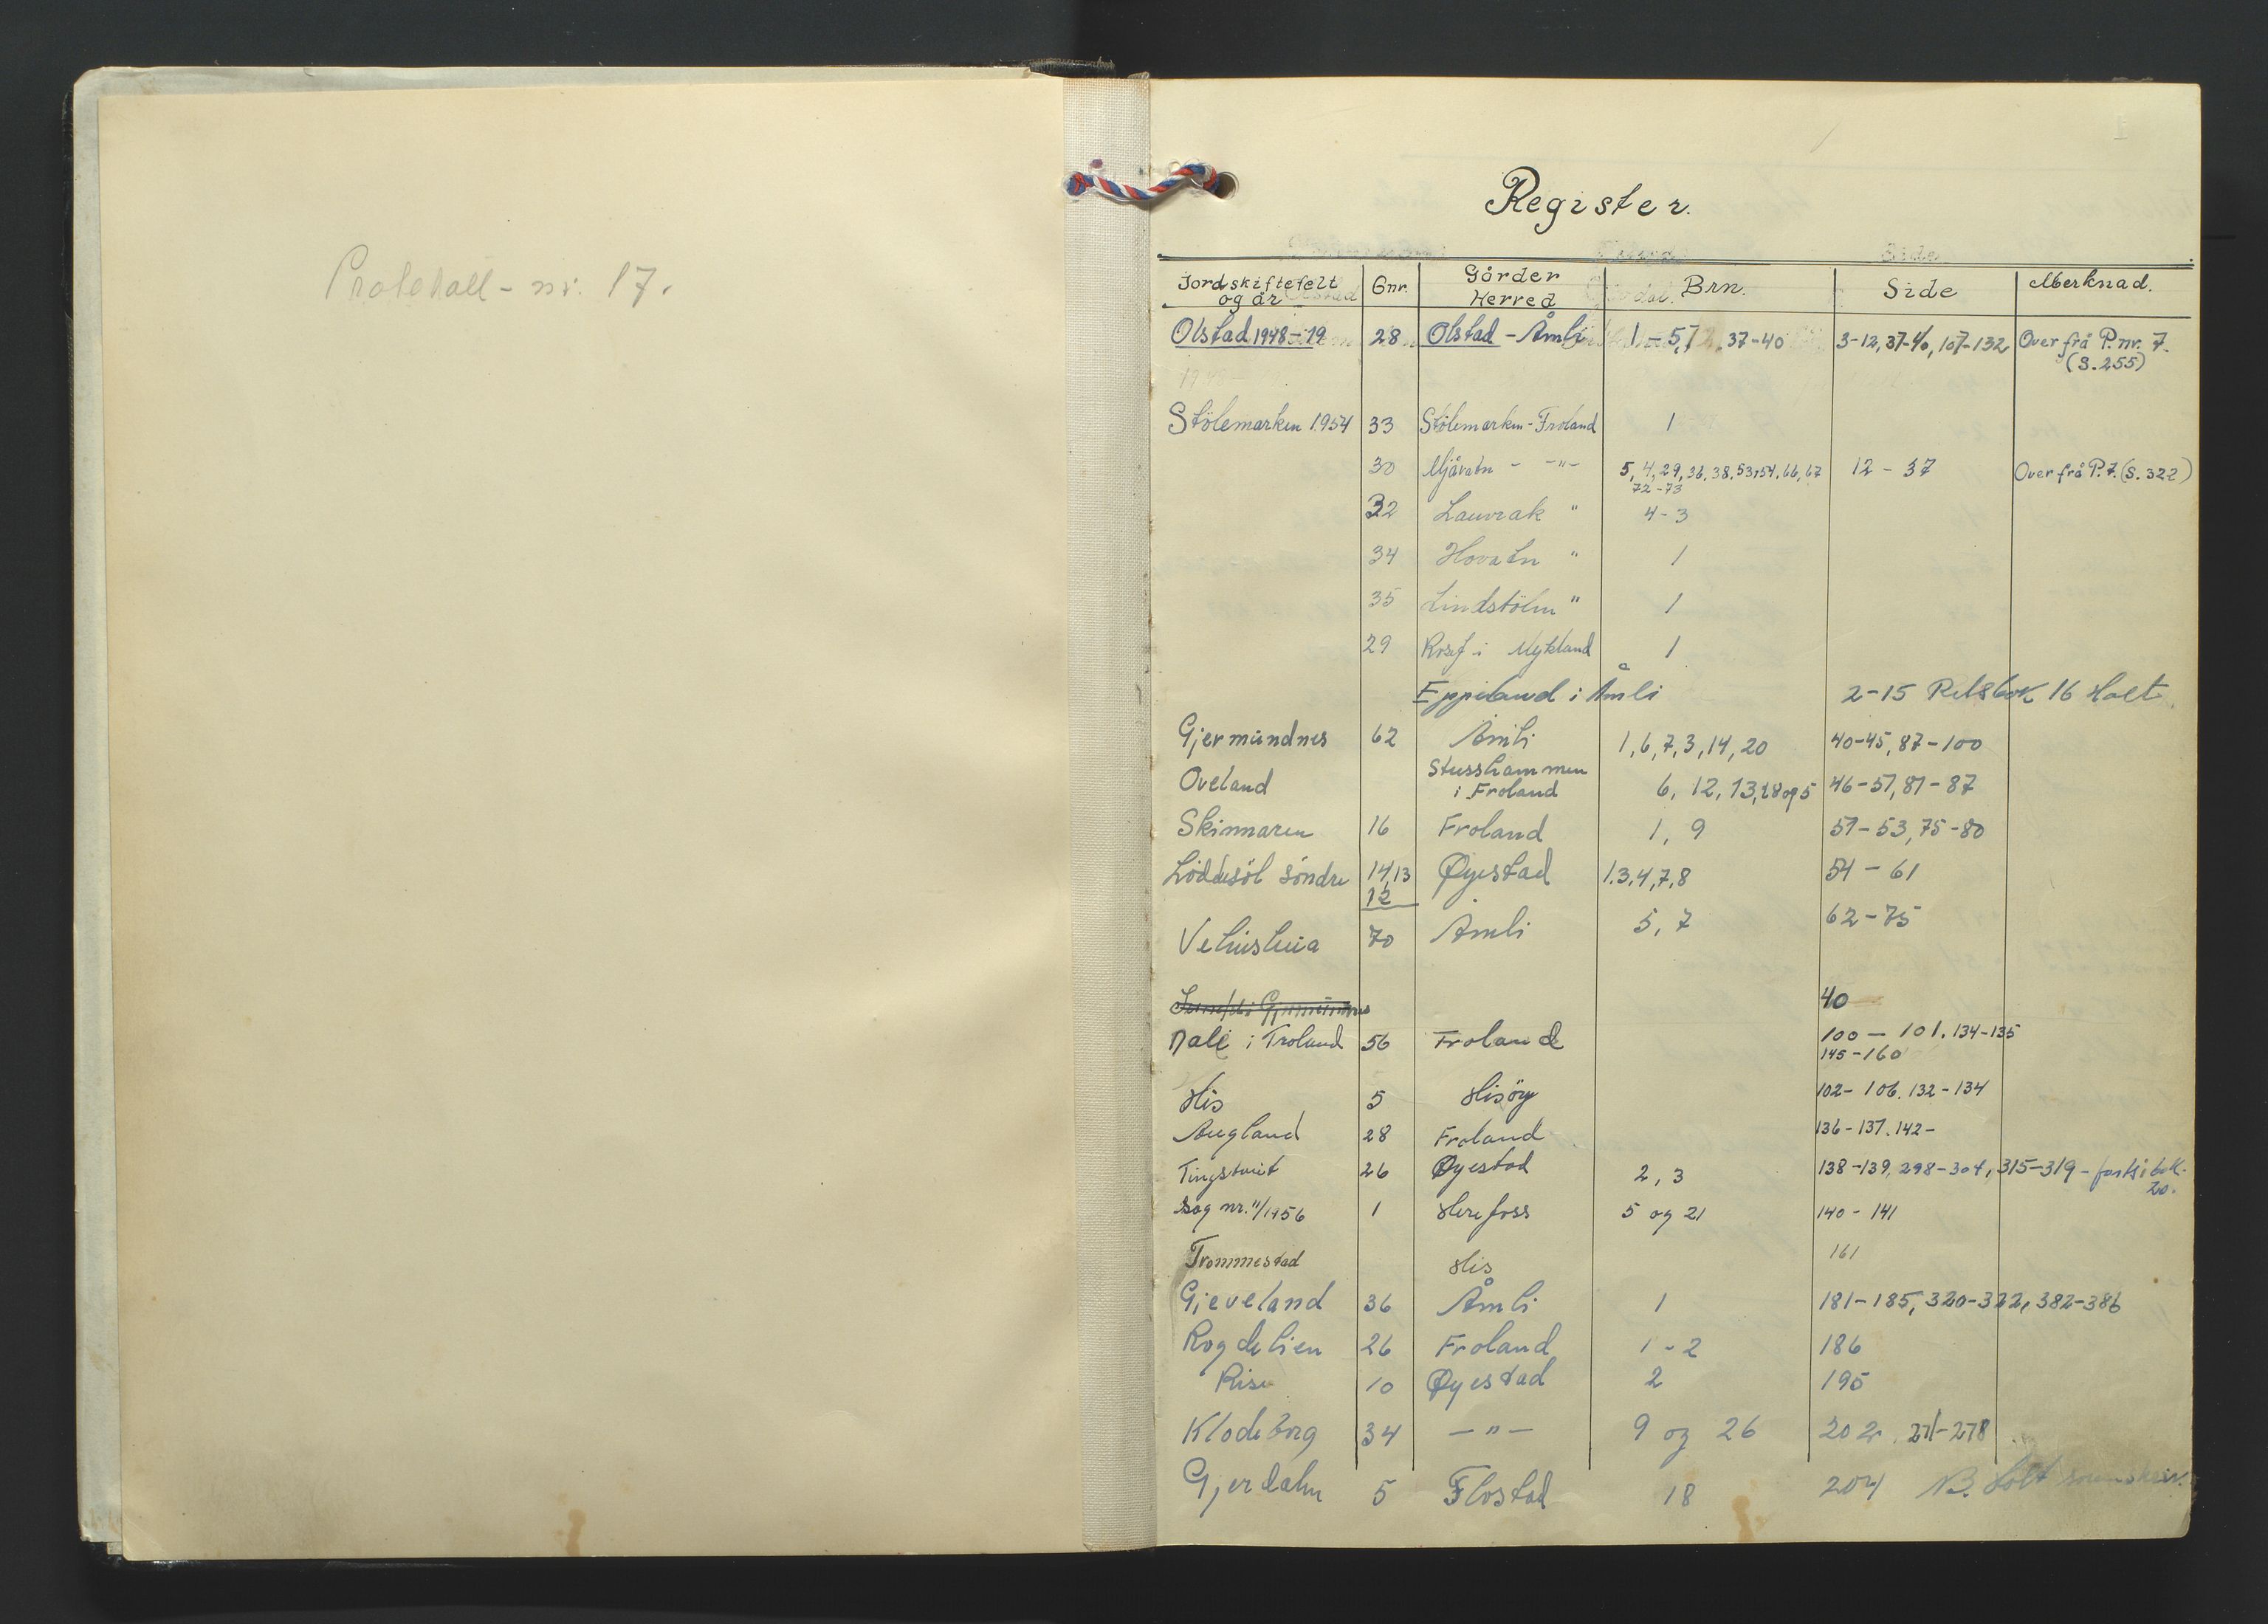 Protokoll - nr. 17.
Register.
Jordskiftefelt og år Gnr. Gårder Herred Brn. Side Merknad.
Olstad 1948-19 28 Olstad - Åmli 1-5,7, 37-40 3-12, 37-40, 107-132 Over frå P.nr. 7.
(S. 255)
1948-
Stölemarken 1954 33 Stölemarken - Froland 1
30 Mjåvatn - -"- 5, 4, 29, 36, 38, 53, 54, 66, 67 12 - 37 Over frå P. 7. (S. 322)
72-73
32 Lauvrak " 4-3
34 Hovatn " 1
35 Lindstölm " 1
29 i Mykland 1
Eppeland i Åmli 2-15 Retsbok 16 Holt
Gjermundnes 62 Åmli 1, 6, 7, 3, 14, 20 40-45, 87-100
Oveland Stusshammen
i Froland 6, 12, 13, 18 og 5 46-51, 81-87
Skinnaren 16 Froland 1, 9 51-53, 75-80
Löddesöl söndre 14,13 Øyestad 1.3.4,7,8 54 - 61
12
Vehusheia 70 Åmli 5, 7 62-75
40
Dale i Froland 56 Froland 100 - 101. 134-135
145-160
His 5 Hisöy 102- 106. 132-134
Augland 28 Froland 136-137. 142-
Tingstveit 26 Øyestad 2, 3 138-139, 298-304, 315-319 - forts i bok.
20.
Sag nr. 11/1956 1 Herefoss 5 og 21 140 - 141
Trommestad His 161
Gjeveland 36 Åmli 1 181-185, 320-322, 382-386
Rogdelien 26 Froland 1-2 186
Rise 10 Øyestad 2 195
Klodeborg 34 -"- 9 og 26 202. 271-278
Gjerdalen 5 Flostad 18 204 B. Holt